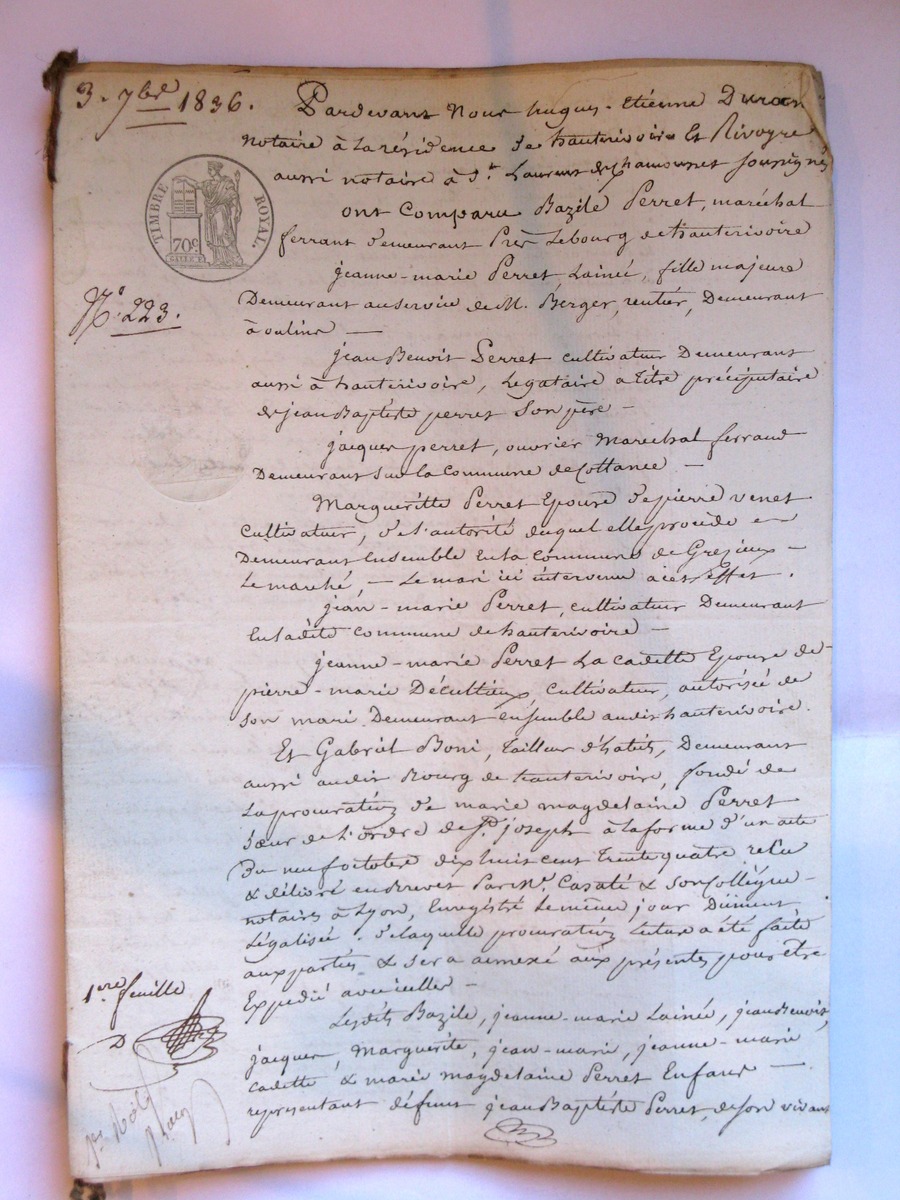 3. 7bre 1836.
Pardevant Nous hugues-Etiénne Duran
notaire à la résidence de hauterivoire Et Rivoyre
aussi notaire à St. Laurent de chamousset soussignés
TIMBRE ROYAL.
70c
ont Comparu Bazile Perret, maréchal
ferrant demeurant Près Lebourg de hauterivoire
jeanne-marie Perret Lainée, fille majeure
No. 223.
Demeurant au service de M. Berger, rentier, Demeurant
à oulins —
jean Benoit Perret cultivateur Demeurant
aussi à hauterivoire, Légataire a titre préciputaire
de jean Baptiste perret son père —
jacques perret, ouvrier Marechal ferrand
Demeurant sur la Commune de Cottance —
Marguéritte Perret Epouse de pierre venet
cultivateur, de l'autorité duquel elle procède et
Demeurant Ensemble En la commune de Grezieux-
Le marché, — Le mari ici intervenu à cet effet.
jean-marie Perret, cultivateur Demeurant
En ladite commune de hauterivoire —
jeanne-marie Perret La cadette Epouse de
pierre-marie Décultieux, cultivateur, autorisée de
son mari Demeurant ensemble audit hauterivoire.
Et Gabriel Boni, tailleur d'habits, Demeurant
aussi audit Bourg de hauterivoire, fondé de
La procuration de marie magdelaine Perret
Sœur de l'ordre de St. joseph à la forme d'un acte
Du neuf octobre dix huit cent trente quatre reçu
& délivré en brevet Par Me. Casati & son Collègue
notaires à Lyon, Enregistré Le même jour Dûment
Légalisée. de laquelle procuration lecture a été faite
aux parties & sera annexé aux présentes pour être
Expédié avec icelles —
1ere feuille
D
Lesdits Bazile, jeanne-marie Lainée, jean Benoit,
jacques, Marguerite, jean-marie, jeanne-marie
cadette & marie magdelaine Perret Enfans —
représentant défunt jean Baptiste Perret, de son vivant